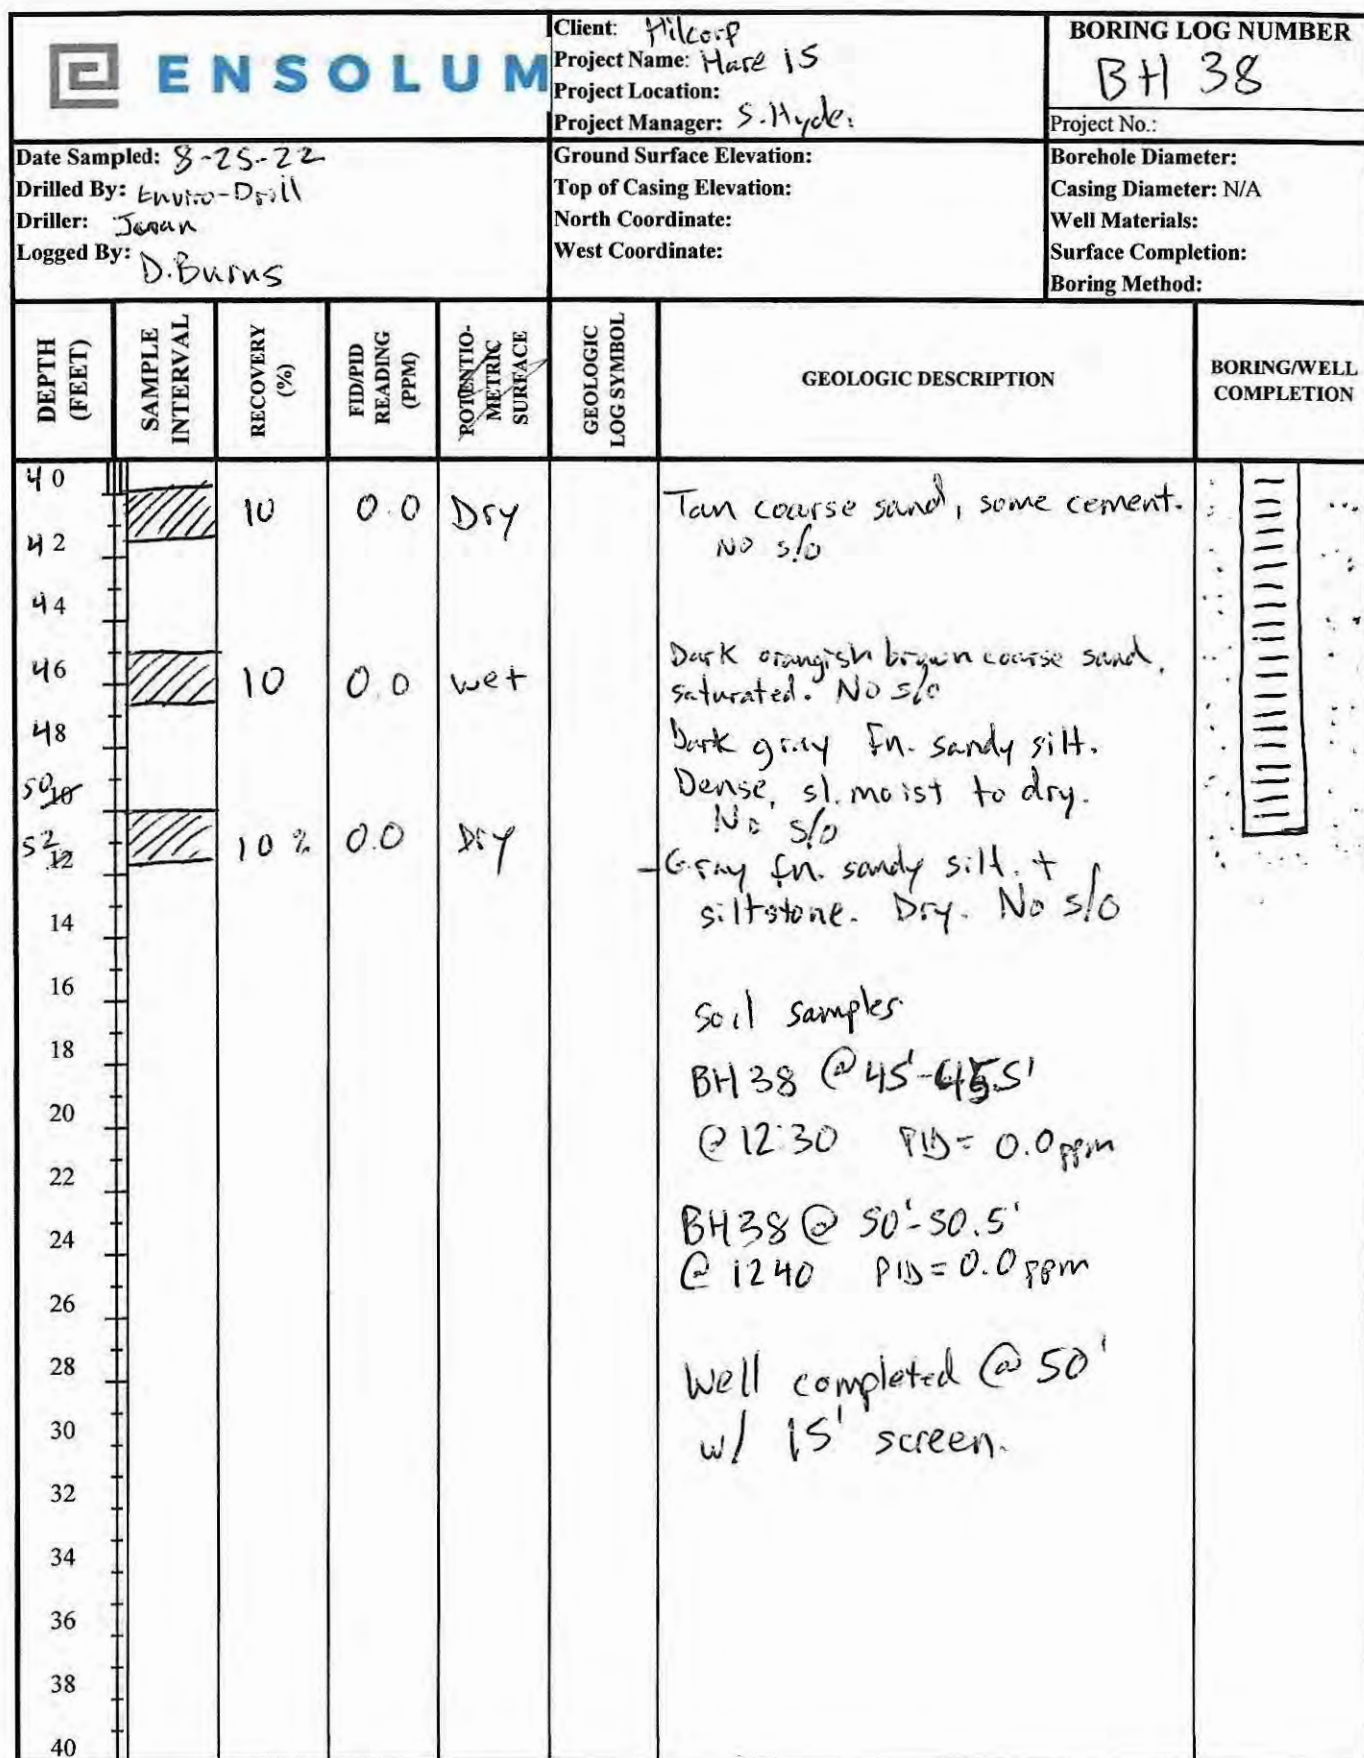 ENSOLUM
Client: Hilcorp
Project Name: Hare 15
Project Location:
Project Manager: S. Hyde
BORING LOG NUMBER
BH 38
Project No.:
Date Sampled: 8-25-22
Drilled By: Enviro-Drill
Driller:
Logged By: D. Burns
Ground Surface Elevation:
Top of Casing Elevation:
North Coordinate:
West Coordinate:
Borehole Diameter:
Casing Diameter: N/A
Well Materials:
Surface Completion:
Boring Method:
DEPTH (FEET)
SAMPLE INTERVAL
RECOVERY (%)
FID/PID READING (PPM)
POTENTIO-METRIC SURFACE
GEOLOGIC LOG SYMBOL
GEOLOGIC DESCRIPTION
BORING/WELL COMPLETION
40
10 0.0 Dry Tan coarse sand, some cement.
No s/o
42
44
46 10 0.0 wet Dark orangish brown coarse sand,
saturated. No s/o
48 Dark gray fn. sandy silt.
50 10 Dense, sl. moist to dry.
No s/o
52 12 10% 0.0 Dry
- Gray fn. sandy silt. +
14 siltstone. Dry. No s/o
16 Soil samples
18 BH38 @ 45'-45.5'
20 @ 12:30 PID = 0.0 ppm
22
24 BH38 @ 50'-50.5'
@ 1240 PID = 0.0 ppm
26
28 Well completed @ 50'
30 w/ 15' screen.
32
34
36
38
40